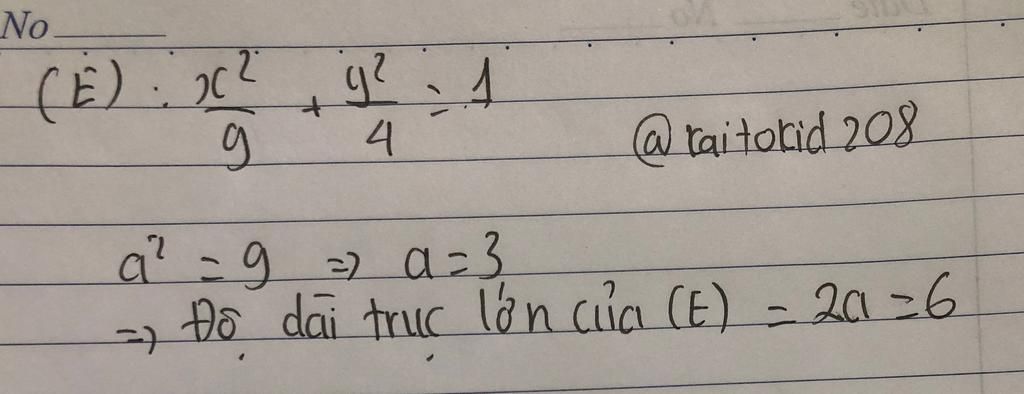 No
(E) : x²/9 + y²/4 = 1
@raitokid208
a² = 9 => a = 3
=> Độ dài trục lớn của (E) = 2a = 6